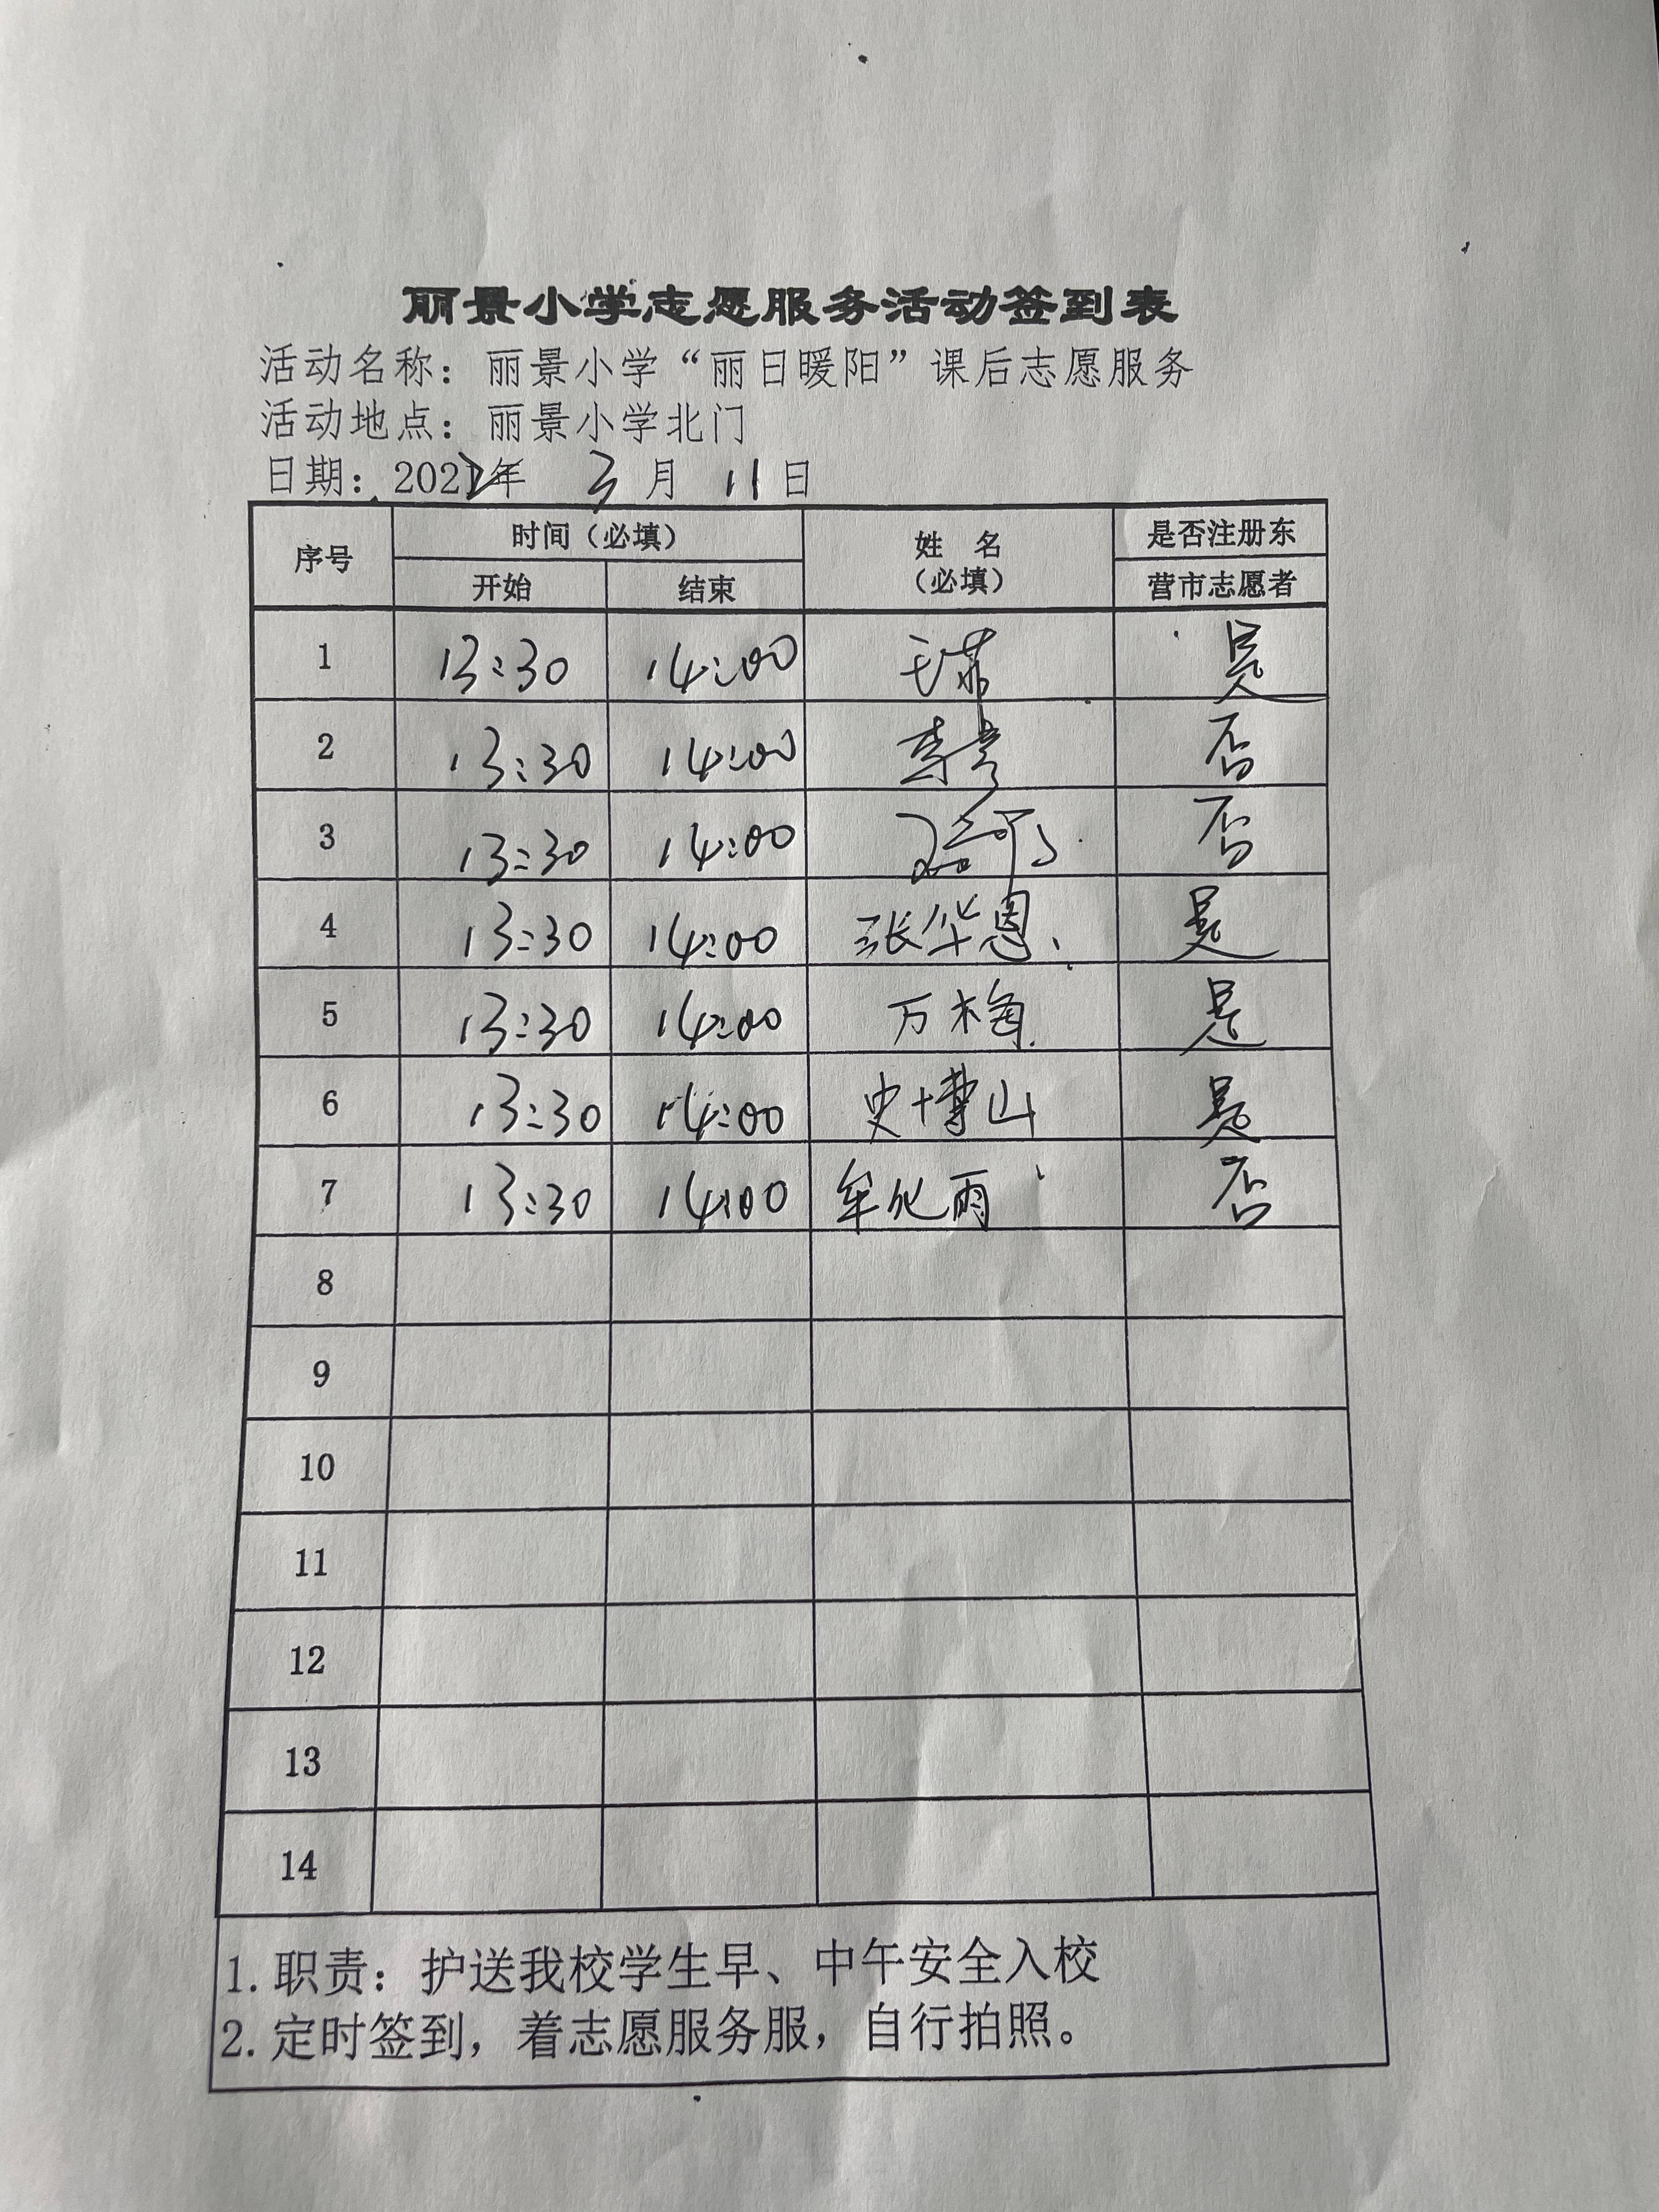 丽景小学志愿服务活动签到表
活动名称：丽景小学“丽日暖阳”课后志愿服务
活动地点：丽景小学北门
日期：2022年 3月 11日
序号 时间（必填） 姓 名 是否注册东
开始 结束 （必填） 营市志愿者
1 13:30 14:00 是
2 13:30 14:00 否
3 13:30 14:00 否
4 13:30 14:00 张华恩 是
5 13:30 14:00 万梅 是
6 13:30 14:00 史博山 是
7 13:30 14:00 牟化雨 否
8
9
10
11
12
13
14
1.职责：护送我校学生早、中午安全入校
2.定时签到，着志愿服务服，自行拍照。